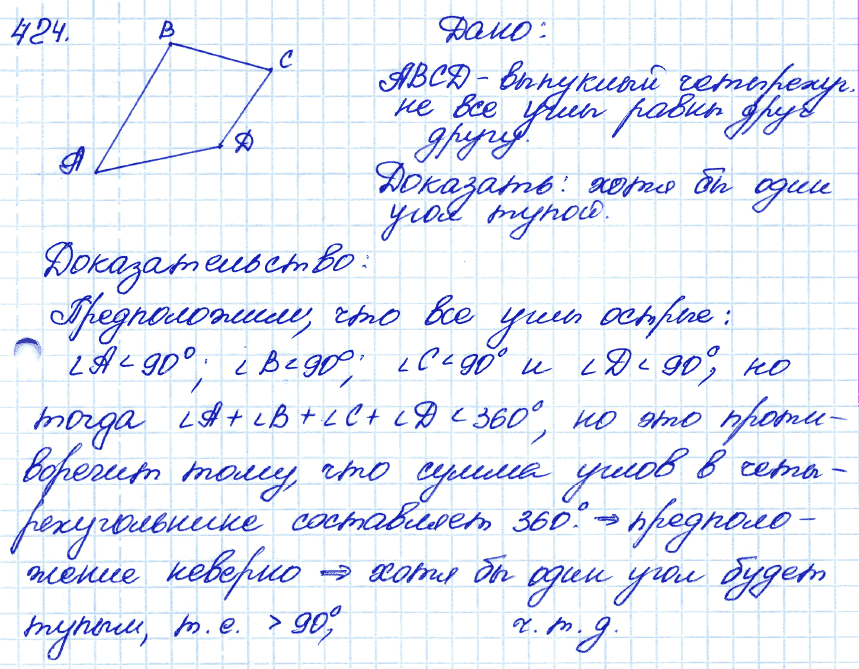 424.
B
C
A
D
Дано:
ABCD - выпуклый четырехуг.
не все углы равны друг
другу.
Доказать: хотя бы один
угол тупой.
Доказательство:
Предположим, что все углы острые:
∠A < 90°; ∠B < 90°; ∠C < 90° и ∠D < 90°, но
тогда ∠A + ∠B + ∠C + ∠D < 360°, но это проти-
воречит тому, что сумма углов в четы-
рехугольнике составляет 360°. ⇒ предполо-
жение неверно ⇒ хотя бы один угол будет
тупым, т.е. > 90°, ч.т.д.